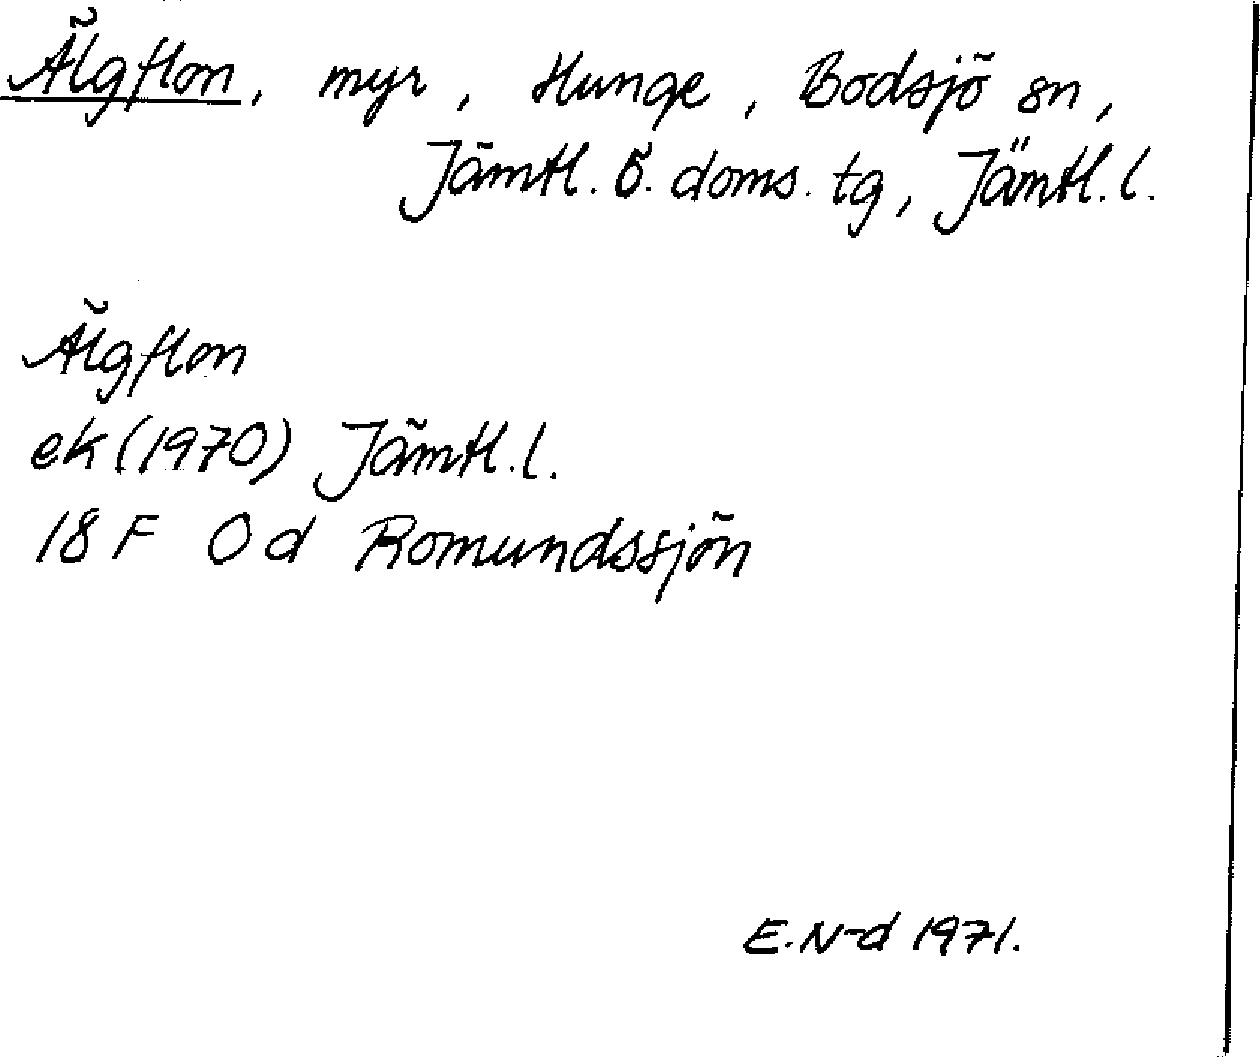 Älgflon, myr, Hunge, Bodsjö sn,
Jämtl. ö. doms. tg, Jämtl. l.
Älgflon
ek (1970) Jämtl. l.
18 F 0 d Romundssjön
E. N-d 1971.